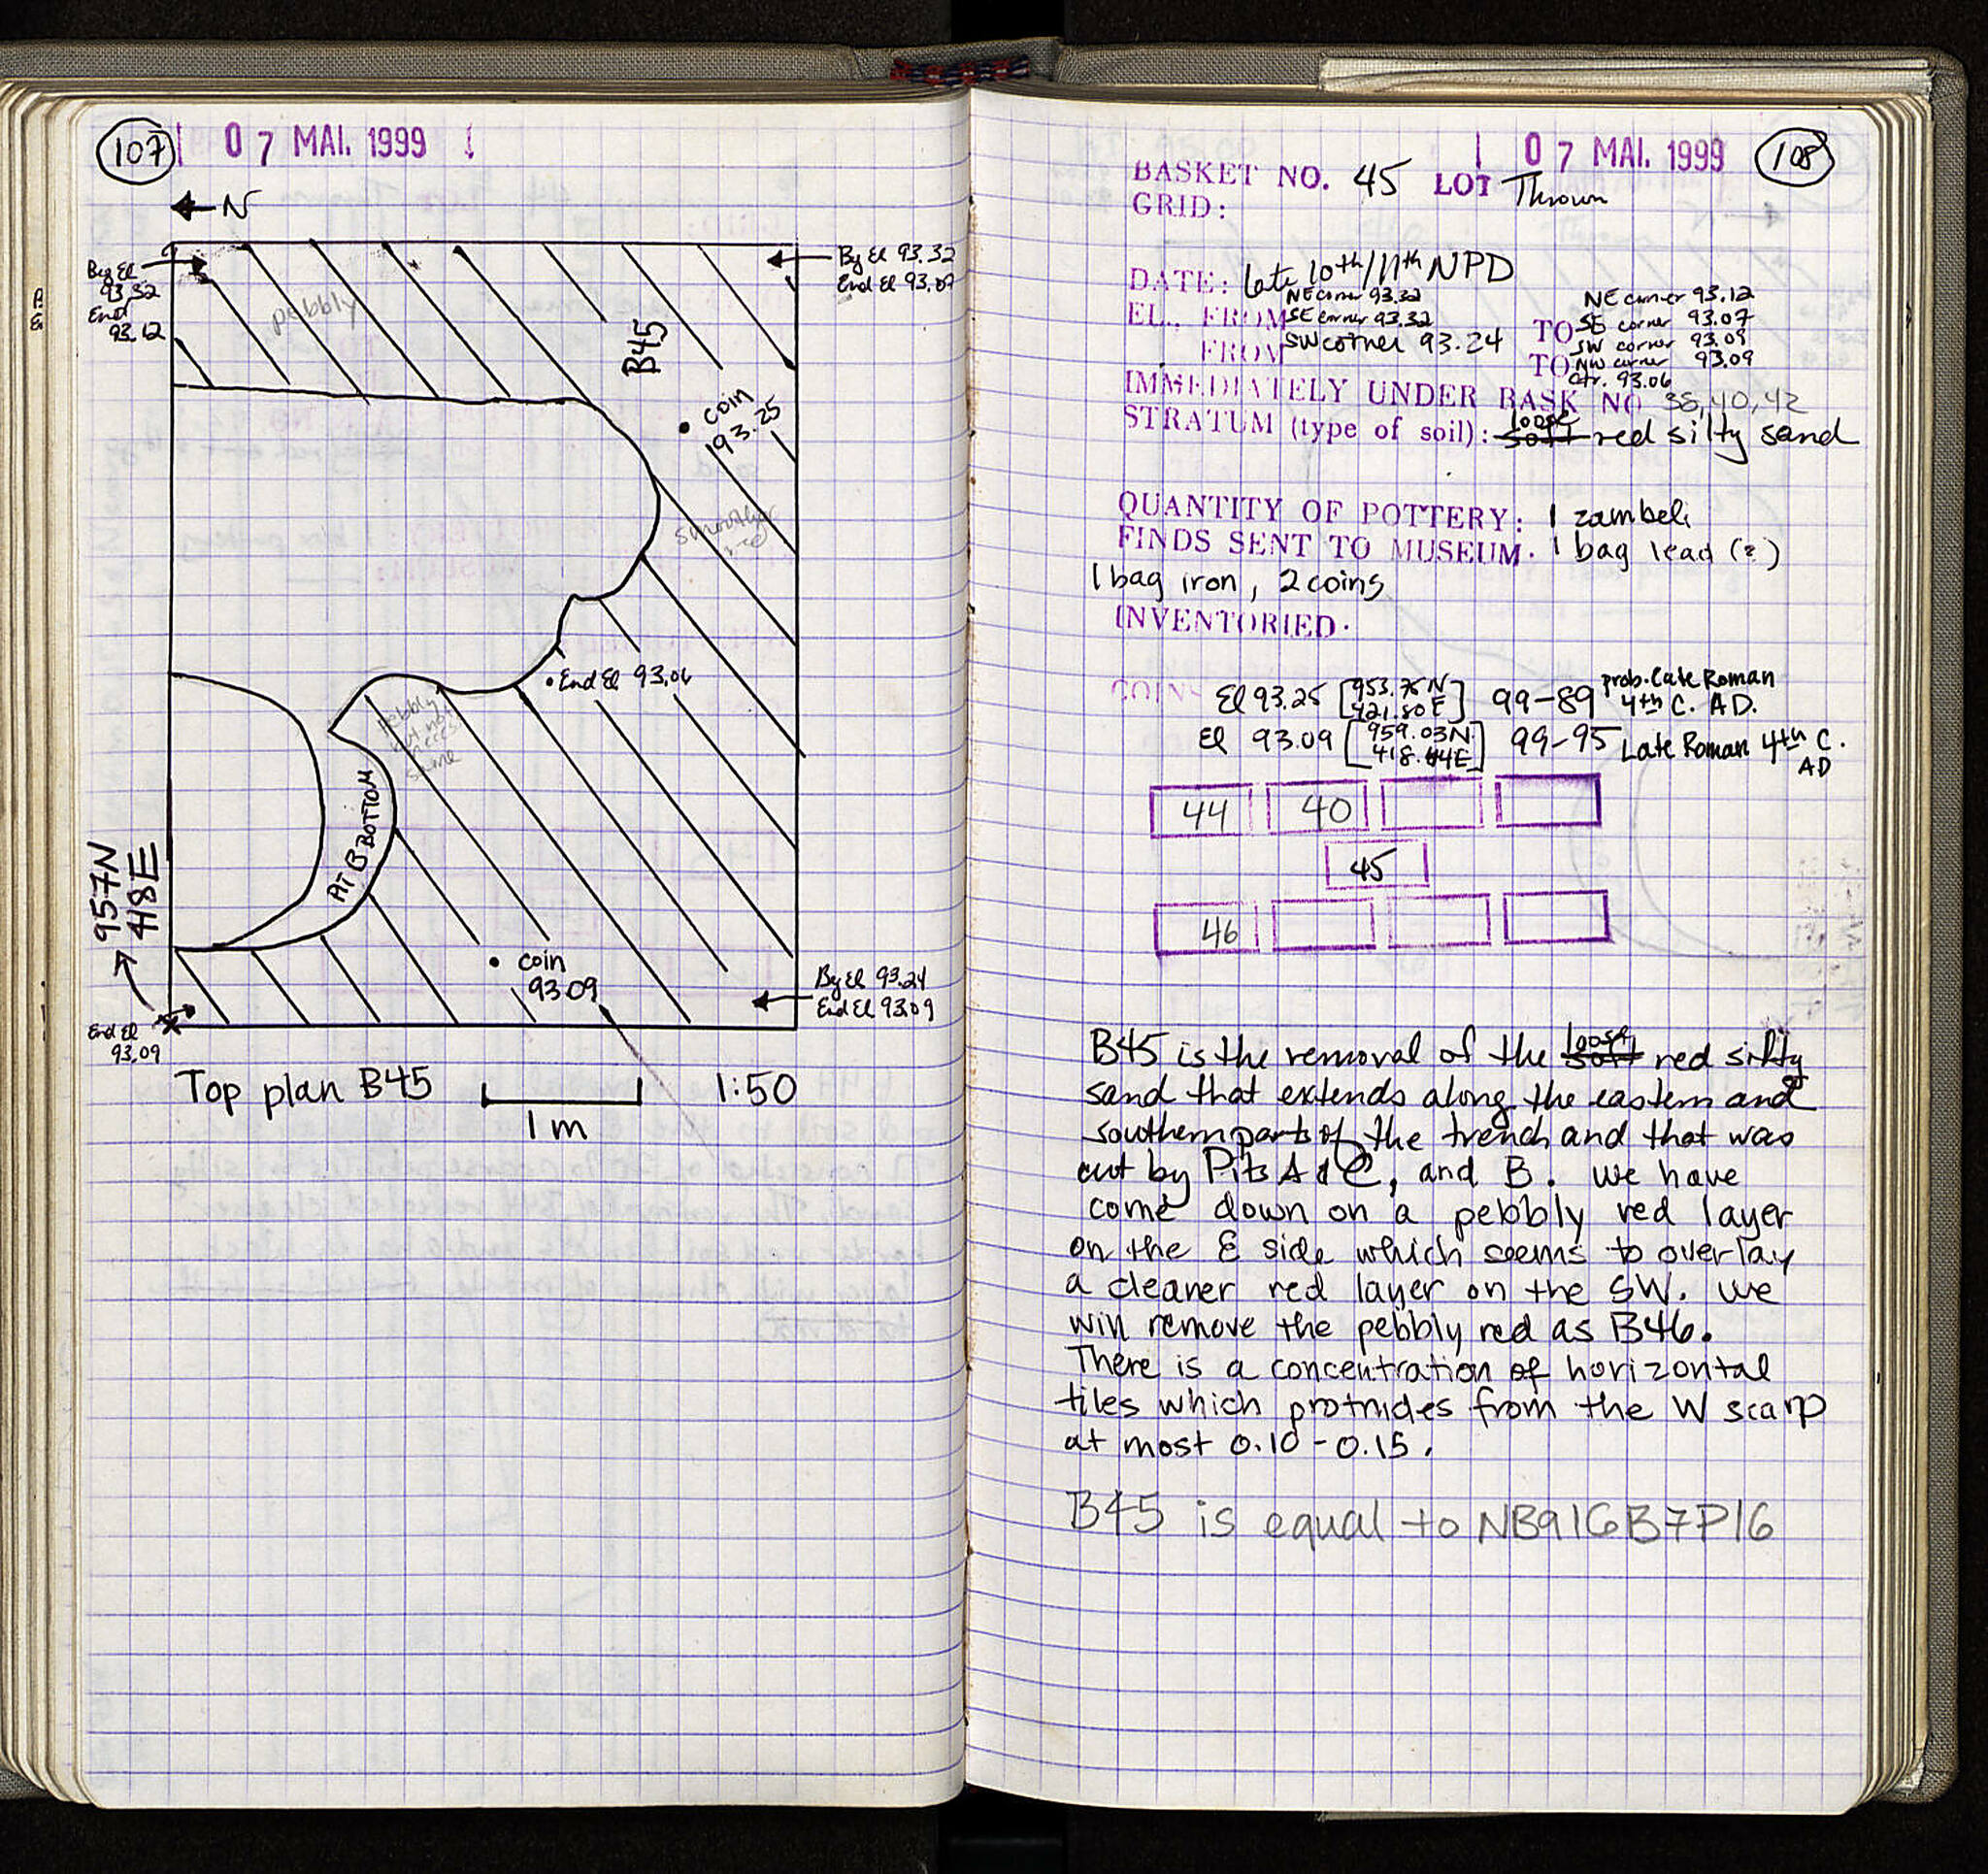 107
07 MAI. 1999
← N
Beg El
93.32
End
93.12
pebbly
By El 93.32
End El 93.07
B45
coin
93.25
smoother
red
• End El 93.06
pebbly
but not
necess.
same
PIT B BOTTOM
957N
418E
• coin
93.09
By El 93.24
End El 93.09
End El
93.09
Top plan B45 1 m 1:50
07 MAI. 1999
108
BASKET NO. 45 LOT Thrown
GRID:
DATE: Late 10th/11th NPD
EL., FROM NE corner 93.32
SE corner 93.32
FROM SW corner 93.24
TO NE corner 93.12
SE corner 93.07
SW corner 93.09
TO NW corner 93.09
ctr. 93.06
IMMEDIATELY UNDER BASK NO 38, 40, 42
STRATUM (type of soil): soft loose red silty sand
QUANTITY OF POTTERY: 1 zambeli
FINDS SENT TO MUSEUM. 1 bag lead (?)
1 bag iron, 2 coins
INVENTORIED.
COINS El 93.25 [953.75N 421.80E] 99-89 prob. Late Roman 4th C. AD.
El 93.09 [959.03N 418.44E] 99-95 Late Roman 4th C. AD
44 40
45
46
B45 is the removal of the soft loose red silty
sand that extends along the eastern and
southern parts of the trench and that was
cut by Pits A & C, and B. We have
come down on a pebbly red layer
on the E side which seems to overlay
a cleaner red layer on the SW. We
will remove the pebbly red as B46.
There is a concentration of horizontal
tiles which protrudes from the W scarp
at most 0.10-0.15.
B45 is equal to NB916B7P16